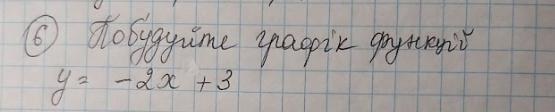 ⑥ Побудуйте графік функції
y = -2x + 3